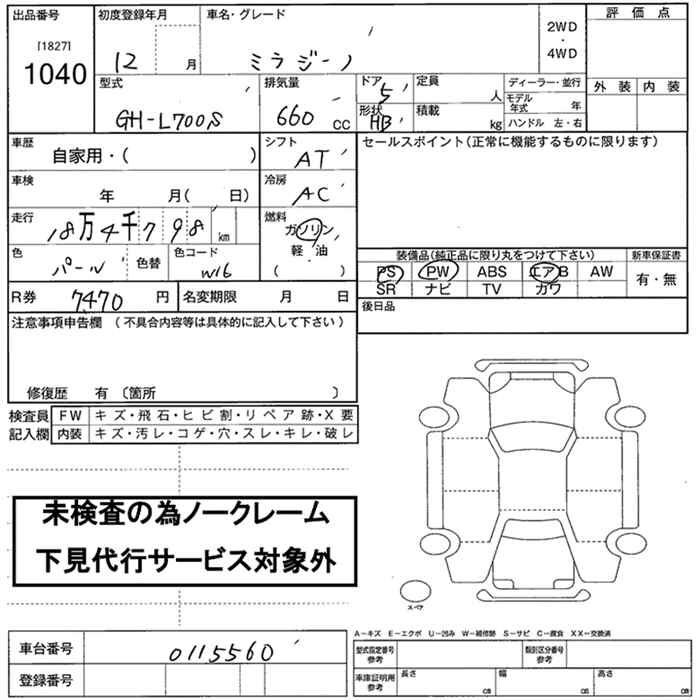 出品番号 初度登録年月 車名・グレード 2WD ・ 4WD 評価点
[1827]
1040 12 月 ミラジーノ
外装 内装
型式 排気量 ドア 定員 ディーラー・並行
GH-L700S 660 CC 5 人 モデル年式 年
形状 HB 積載 kg ハンドル 左・右
車歴 自家用・( ) シフト AT セールスポイント(正常に機能するものに限ります)
車検 年 月( 日) 冷房 AC
走行 18万4千798 km 燃料 ガソリン
軽・油
( )
色 パール 色替 色コード W16
装備品(純正品に限り丸をつけて下さい) 新車保証書
PS PW ABS エアB AW 有・無
SR ナビ TV カワ
R券 7470 円 名変期限 月 日 後日品
注意事項申告欄 (不具合内容等は具体的に記入して下さい)
修復歴 有 〔箇所 〕
検査員 FW キズ・飛石・ヒビ割・リペア跡・X要
記入欄 内装 キズ・汚レ・コゲ・穴・スレ・キレ・破レ
未検査の為ノークレーム
下見代行サービス対象外
スペア
A-キズ E-エクボ U-凹み W-補修跡 S-サビ C-腐食 XX-交換済
車台番号 0115560 型式指定番号 参考 類別区分番号 参考
登録番号 車庫証明用 参考 長さ cm 幅 cm 高さ cm